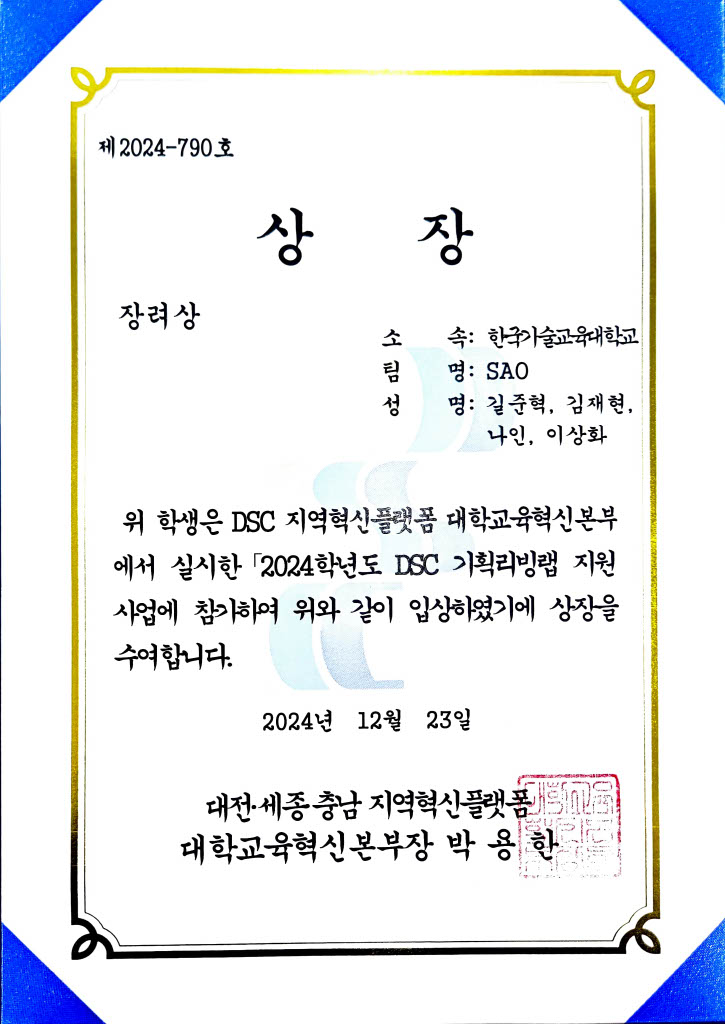 제2024-790호
상 장
장려상
소 속: 한국기술교육대학교
팀 명: SAO
성 명: 길준혁, 김재현,
나인, 이상화
위 학생은 DSC 지역혁신플랫폼 대학교육혁신본부
에서 실시한 「2024학년도 DSC 기획리빙랩 지원
사업에 참가하여 위와 같이 입상하였기에 상장을
수여합니다.
2024년 12월 23일
대전·세종·충남 지역혁신플랫폼
대학교육혁신본부장 박 용 한